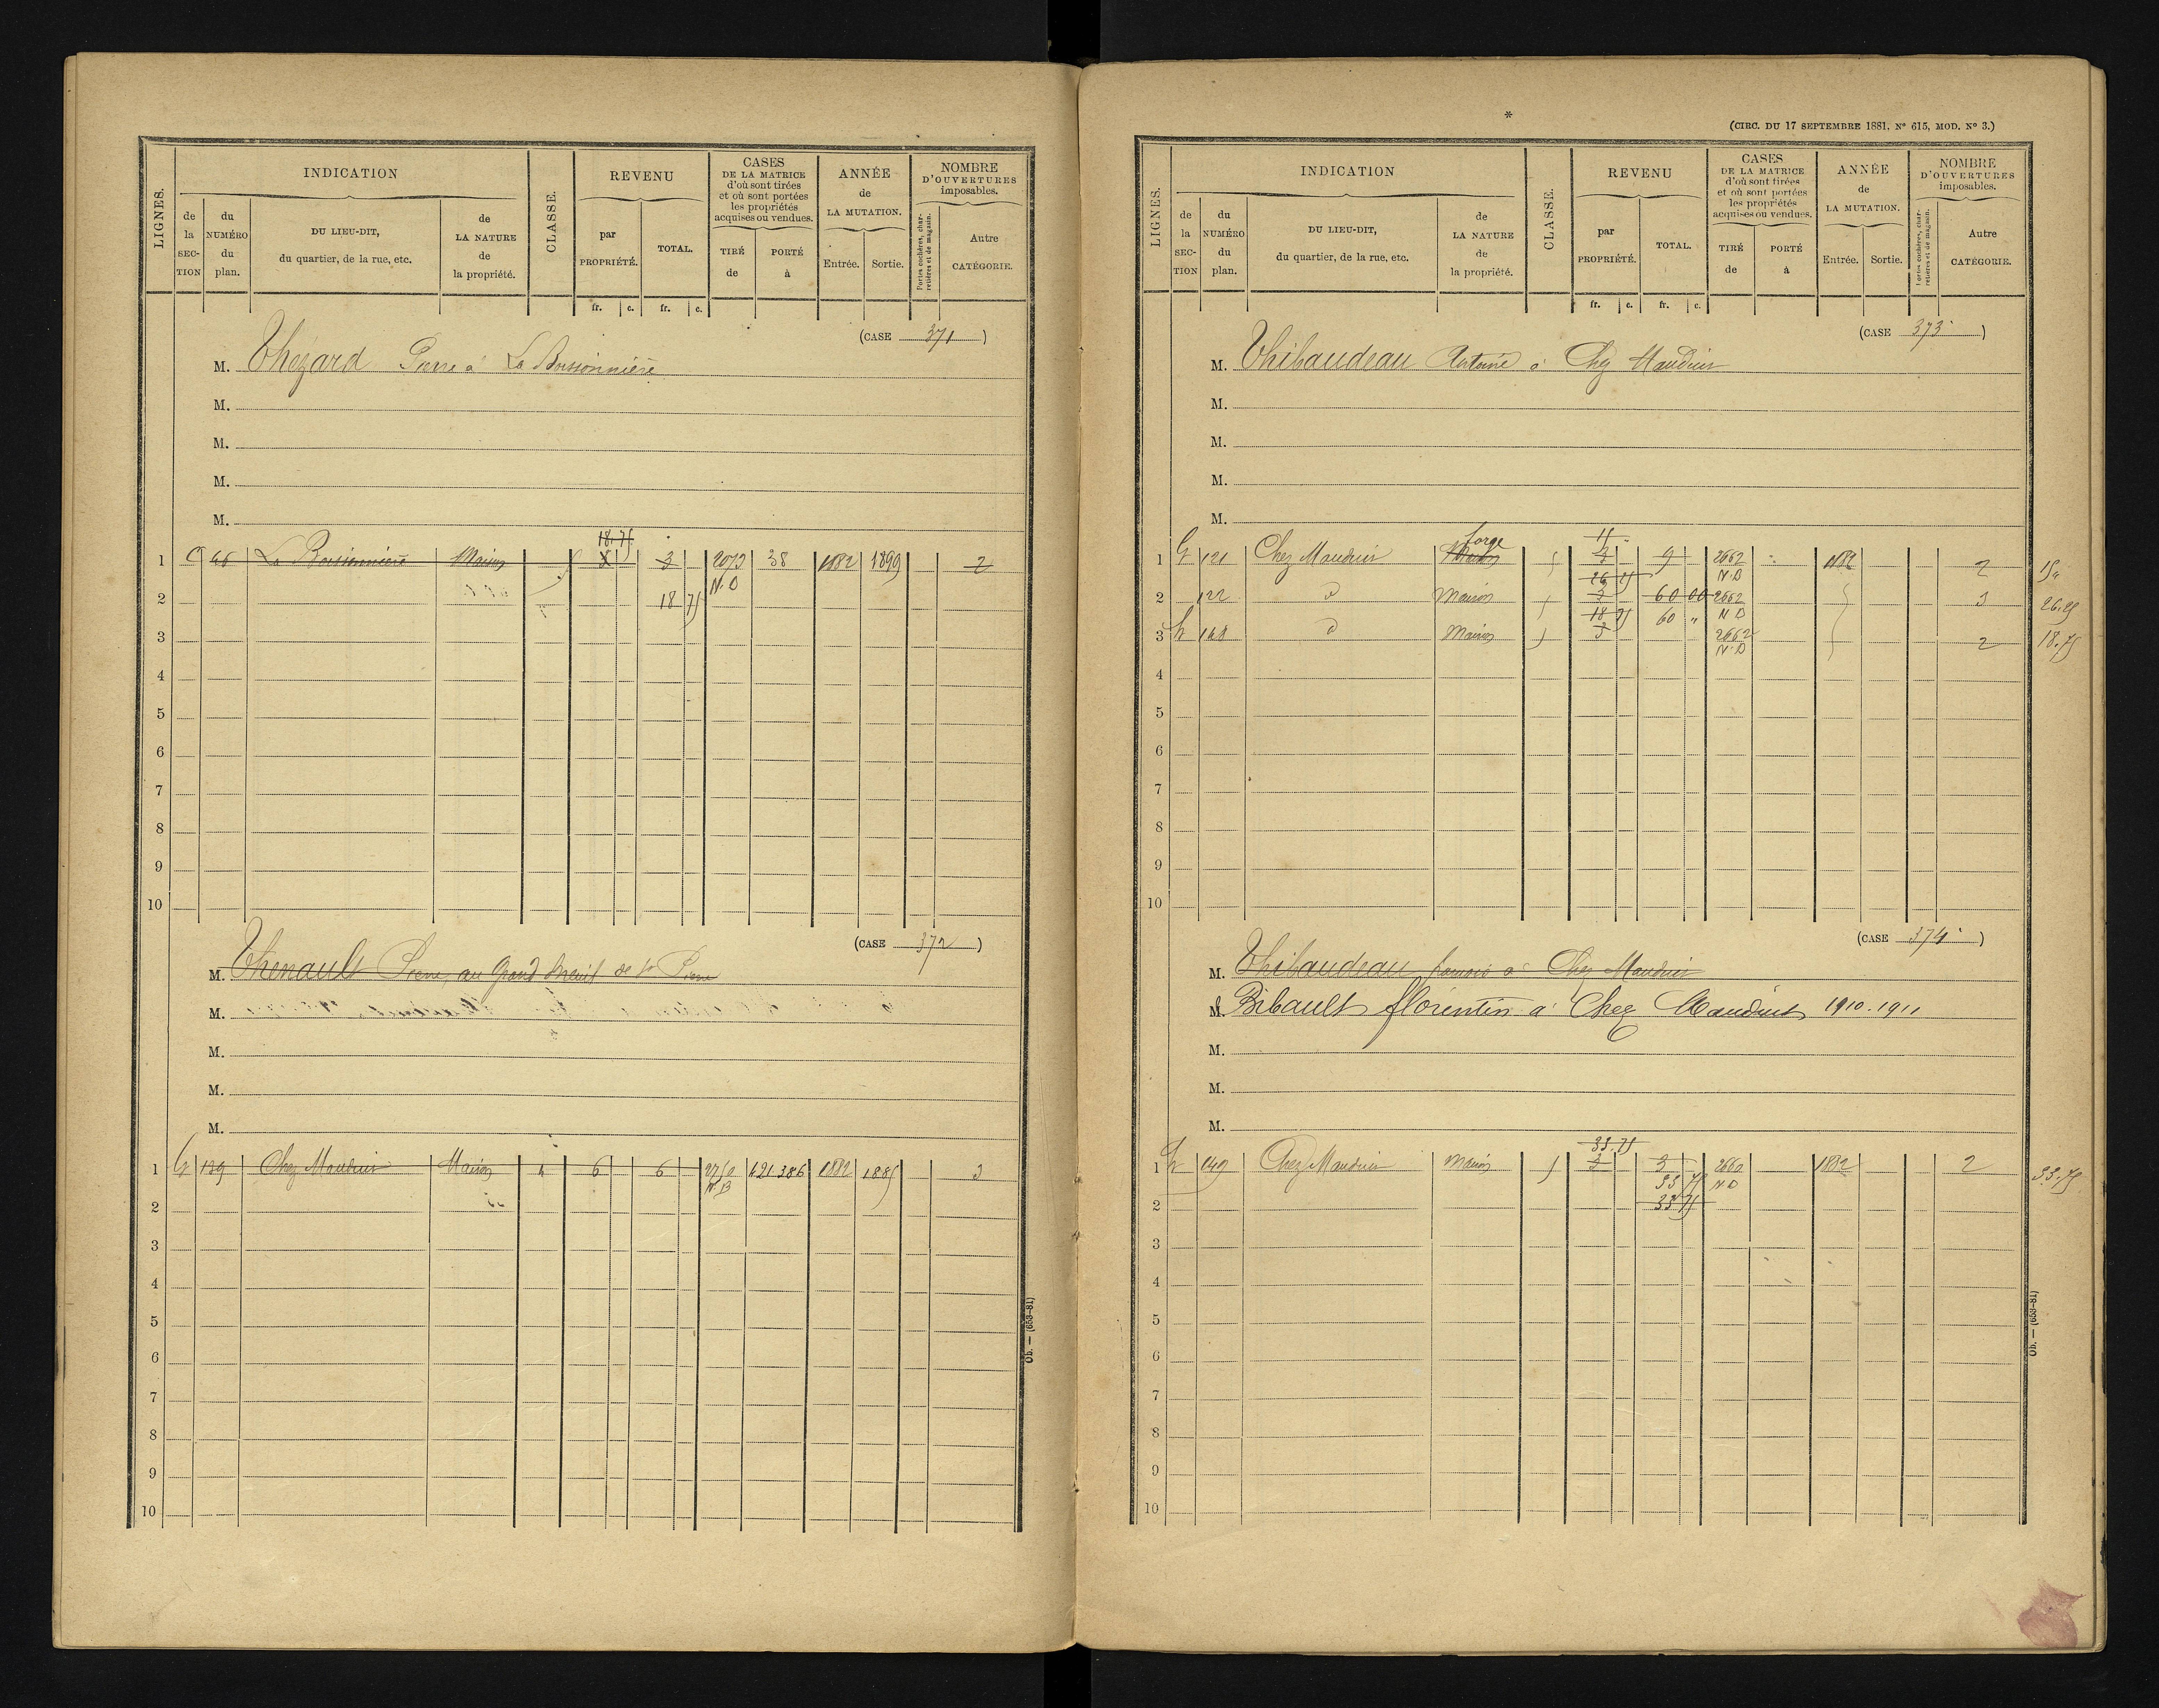 LIGNES.
INDICATION
de la SECTION
du NUMÉRO du plan.
DU LIEU-DIT, du quartier, de la rue, etc.
de LA NATURE de la propriété.
CLASSE.
REVENU
par PROPRIÉTÉ.
TOTAL.
CASES DE LA MATRICE d'où sont tirées et où sont portées les propriétés acquises ou vendues.
TIRÉ de
PORTÉ à
ANNÉE de LA MUTATION.
Entrée.
Sortie.
NOMBRE D'OUVERTURES imposables.
Portes cochères, charretières et de magasin.
Autre CATÉGORIE.
fr. c. fr. c.
(CASE 371)
M. Thezard Pierre à La
M.
M.
M.
M.
18.75
1 C 46 La Maison 5 3 2073 38 1882 1899 2
N.D
2 18 75
3
4
5
6
7
8
9
10
(CASE 372)
M. Thenault Pierre, au Grand Breuil de St Pierre
M.
M.
M.
M.
1 G 139 Chez Mauduit Maison 4 6 6 2750 421.386 1882 1885 3
N.D
2
3
4
5
6
7
8
9
10
Ob. — (653-81)
*
(CIRC. DU 17 SEPTEMBRE 1881, N° 615, MOD. N° 3.)
LIGNES.
INDICATION
de la SECTION
du NUMÉRO du plan.
DU LIEU-DIT, du quartier, de la rue, etc.
de LA NATURE de la propriété.
CLASSE.
REVENU
par PROPRIÉTÉ.
TOTAL.
CASES DE LA MATRICE d'où sont tirées et où sont portées les propriétés acquises ou vendues.
TIRÉ de
PORTÉ à
ANNÉE de LA MUTATION.
Entrée.
Sortie.
NOMBRE D'OUVERTURES imposables.
Portes cochères, charretières et de magasin.
Autre CATÉGORIE.
fr. c. fr. c.
(CASE 373)
M. Thibaudeau Antoine à Chez Mauduit
M.
M.
M.
M.
forge 15
1 G 121 Chez Mauduit Maison 5 3 9 2662 1882 2 15"
26 25 N.D
2 122 d Maison 5 3 60 00 2662 3 26.25
18 75 60 " N D
3 h 168 d Maison 5 3 2662 2 18.75
N.D
4
5
6
7
8
9
10
(CASE 374)
M. Thibaudeau à Chez Mauduit
M. Bibault florentin à Chez Mauduit 1910.1911
M.
M.
M.
33.75
1 h 149 Chez Mauduit Maison 5 3 3 2662 1882 2 33.75
33 75 N D
2 33 75
3
4
5
6
7
8
9
10
Ob. — (653-81)